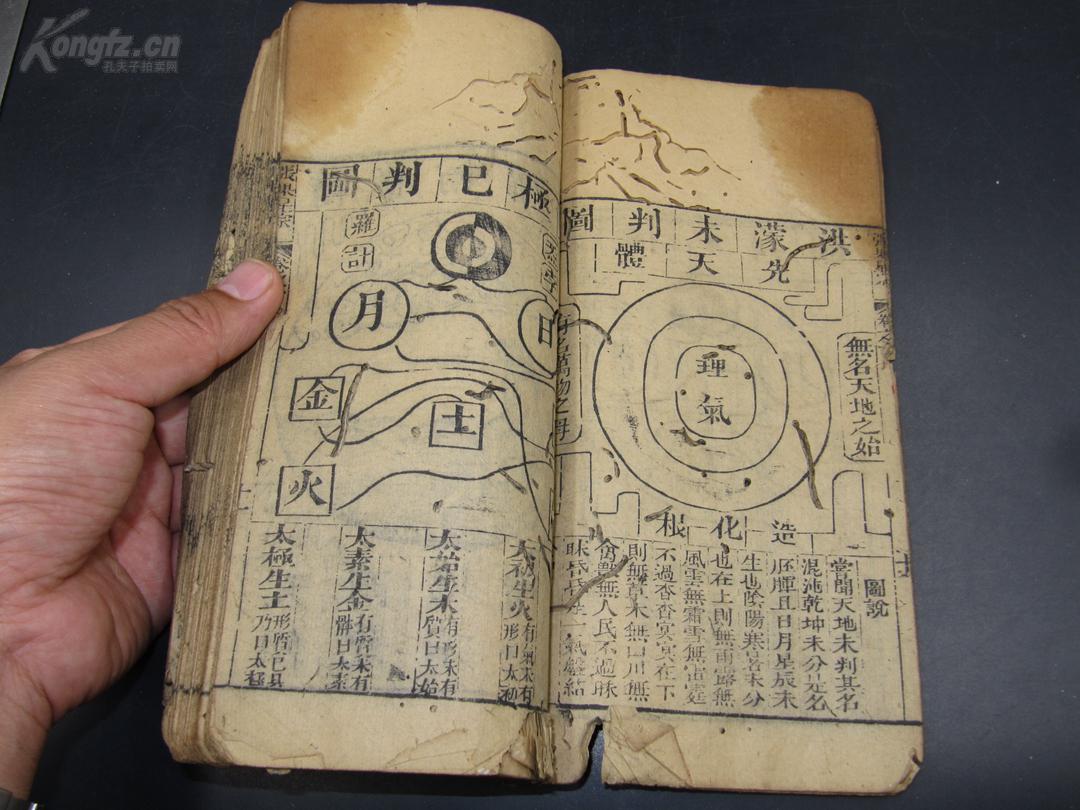 Kongfz.cn
孔夫子拍卖网
洪濛未判圖
先天體
無名天地之始
理氣
有名萬物之母
造化根
圖說
嘗聞天地未判其名
混沌乾坤未分是名
胚腪且日月星辰未
生也陰陽寒暑未分
也在上則無雨露無
風雲無霜雪無雷霆
不過杳杳冥冥在下
則無草木無山川無
禽獸無人民不過昧
昧昏昏 一氣盤結
極巳判圖
羅計
日
月
土
金
火
太初生火 有氣未有形曰太初
太始生木 有形未有質曰太始
太素生金 有質未有體曰太素
太極生土 形質已具乃曰太極
張果星宗